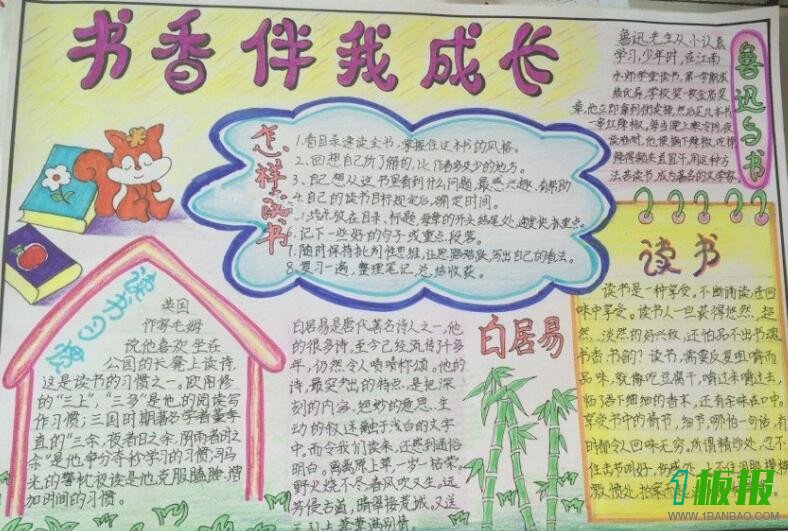 书香伴我成长
鲁迅与书
鲁迅先生从小认真
学习,少年时,在江南
水师学堂读书,第一学期成
绩优异,学校奖一枚金质奖
章,他立即拿到街卖掉,然后买几本书
一串红辣椒,每当晚上寒冷时,夜
读难耐,他便摘下辣椒,
辣得额头直冒汗,用这种方
法苦读书,成为著名的文学家
怎样读书
1.看目录速读全书,掌握住这本书的风格。
2.回想自己所了解的,比作者多或少的地方。
3.自己想从这书里看到什么问题,最感兴趣、有帮助
4.自己的读书目标规定后,确定时间。
放在目录、标题、每章的开头结尾处,速度快,重点。
6.记下一些好的句子或重点段落。
7.随时保持批判性思维,让思路活跃,写出自己的看法。
8.复习一遍,整理笔记,总结收获。
读书习惯
英国
作家毛姆
说他喜欢坐在
公园的长凳上读诗,
这是读书的习惯之一。欧阳修
的“三上”,“三多”是他的阅读写
作习惯;三国时期著名学者董季
直的“三余,夜者日之余,阴雨者时之
余”是他争分夺秒学习的习惯;司马
光的警枕夜读是他克服瞌睡,增
加时间的习惯。
白居易
白居易是唐代著名诗人之一,他
的很多诗,至今已经流传了千多
年,仍然令人啧啧称颂。他的
诗,最突出的特点,是把深
刻的内容、绝妙的意思、生
动的叙述融于浅白的文字
中。而令我们读来,还感到通俗
明白。离离原上草,一岁一枯荣。
野火烧不尽,春风吹又生。远
芳侵古道,晴翠接荒城。又送
王孙去,萋萋满别情。
读书
读书是一种享受。不断诵读,在回
味中享受。读书人一旦获得悠然、超
然、淡然的好兴致,还怕品不出书魂
书香书韵?读书,需要反复咀嚼而
品味,就像吃豆腐干,嚼过来嚼过去,
临了吞下细细的香末,还有余味在口中。
享受书中的情节,细节,哪怕一句话,有
时都令人回味无穷。所谓精妙处,忍不
住击节叫好,伤感处,忍不住泪眼
激愤处,拍案
1板报
WWW.1BANBAO.COM